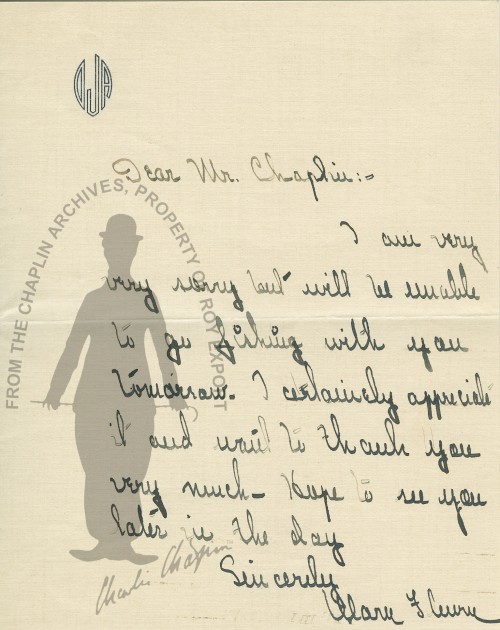 OJA
Dear Mr. Chaplin:-
I am very
very sorry but will be unable
to go fishing with you
tomorrow. I certainely appreciate
it and want to thank you
very much - Hope to see you
later in the day
Sincerely
FROM THE CHAPLIN ARCHIVES, PROPERTY OF ROY EXPORT
Charlie Chaplin